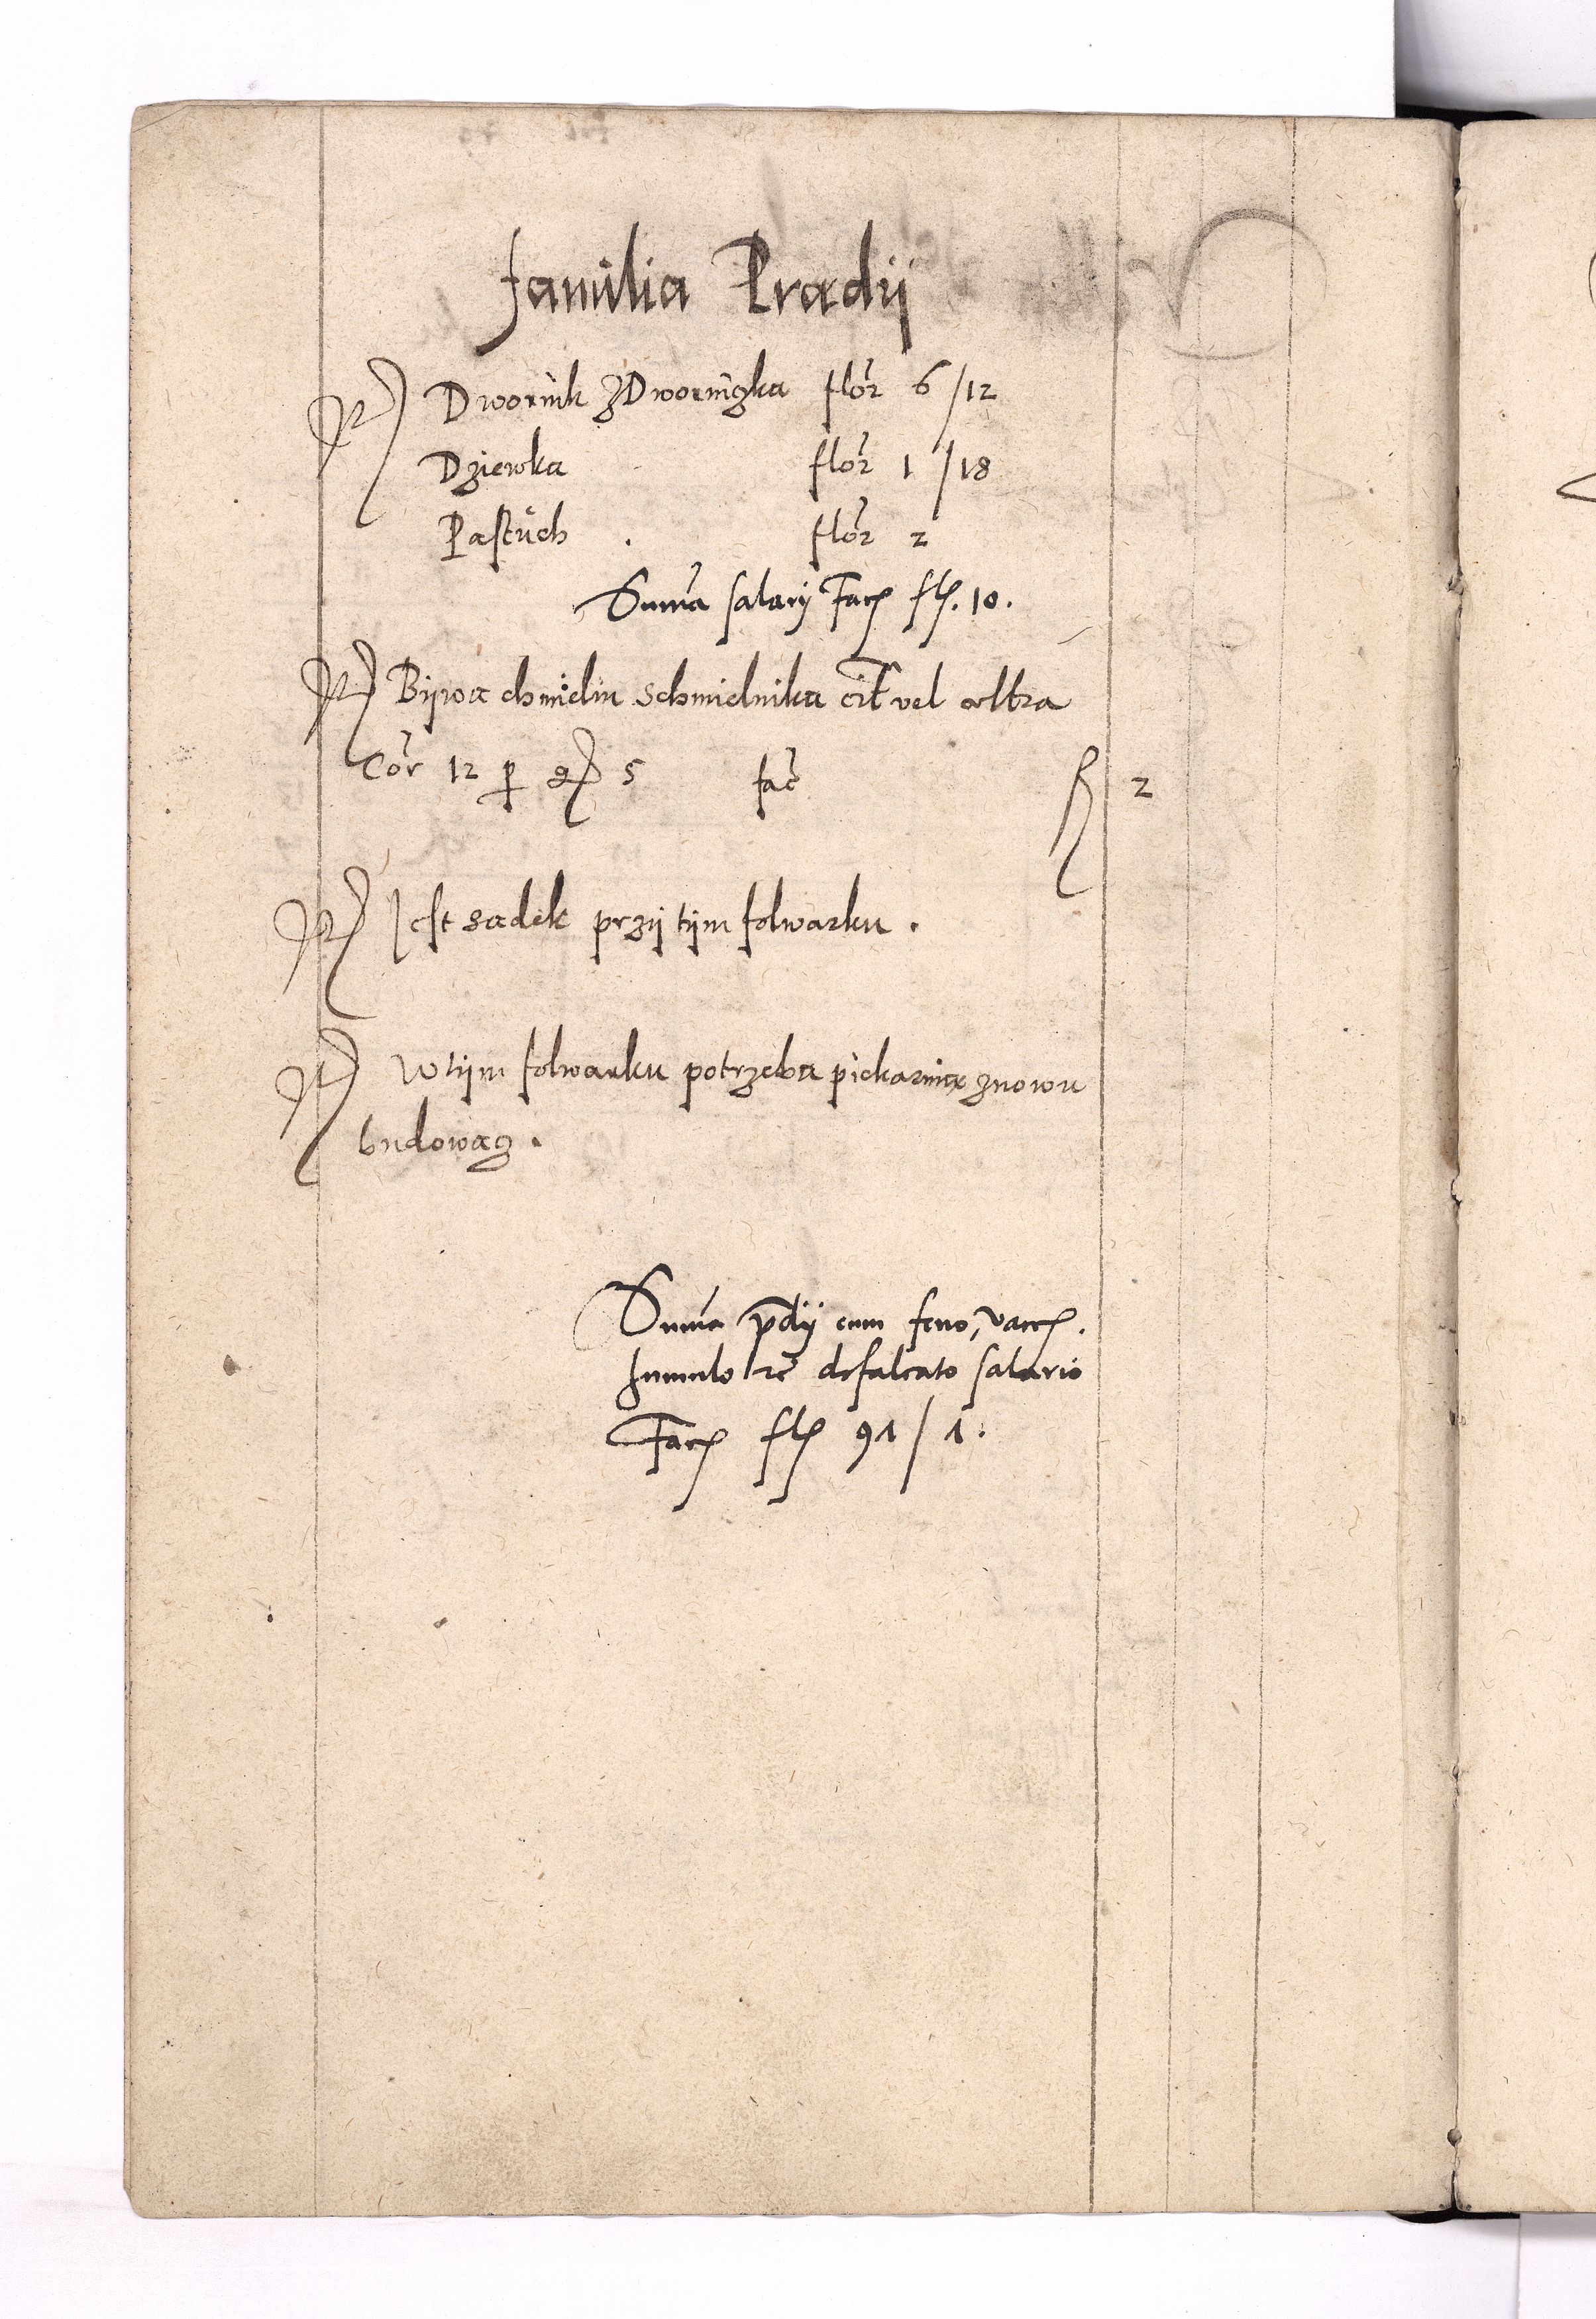 Familia Prædij
It Dwornik zDworniczka flor 6/12
Dziewka flor 1/18
Pastuch . flor 2
Suma salarij Fac fl. 10.
It Bijwa chmielu schmielnika cit vel ultra
Cor 12 p g 5 fac fl 2
It Jest sadek przij tijm folwarku .
It Wtijm folwarku potrzeba piekarnia znowu
budowacz .
Suma pdij cum feno, vacc.
humulo rc defalcato salario
Fac fl 91/1.